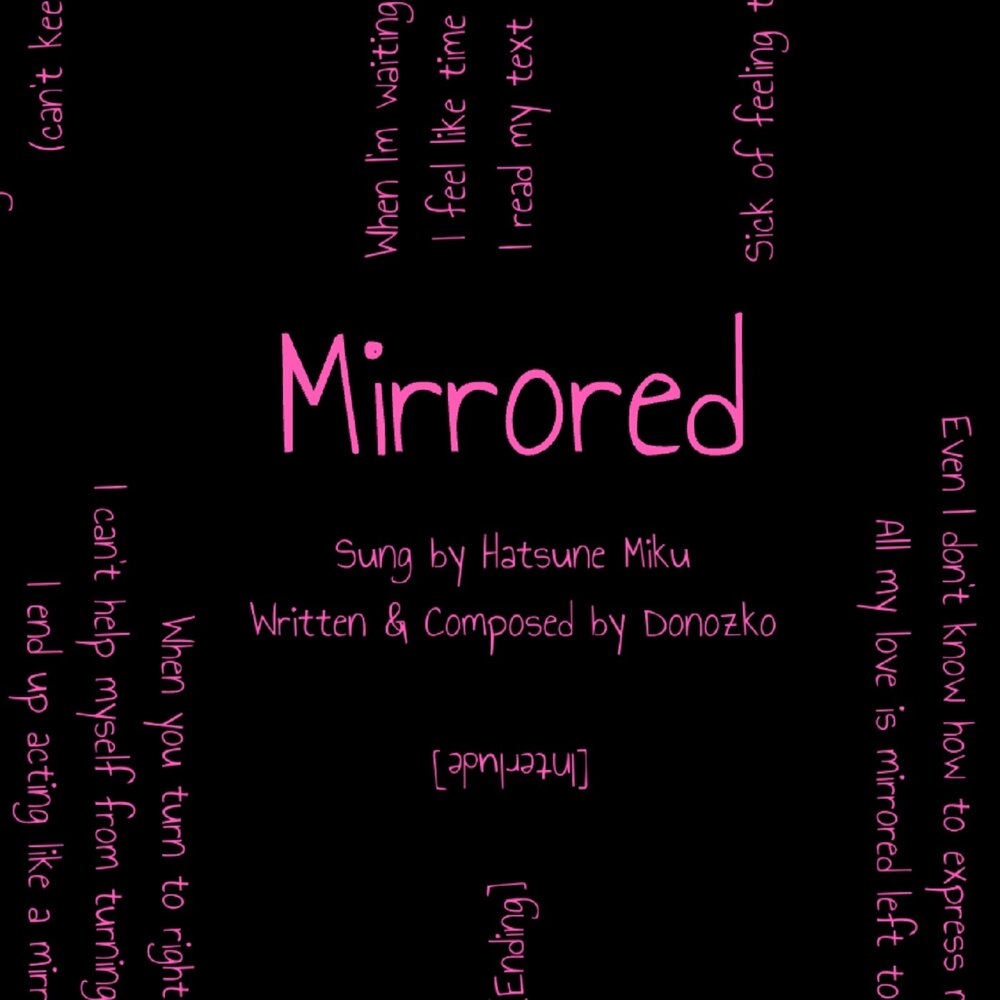 (can't kee
When I'm waiting
I feel like time
I read my text
Sick of feeling t
Mirrored
Sung by Hatsune Miku
Written & Composed by Donozko
[Interlude]
Ending]
I end up acting like a mirr
I can't help myself from turning
When you turn to right
All my love is mirrored left to
Even I don't know how to express